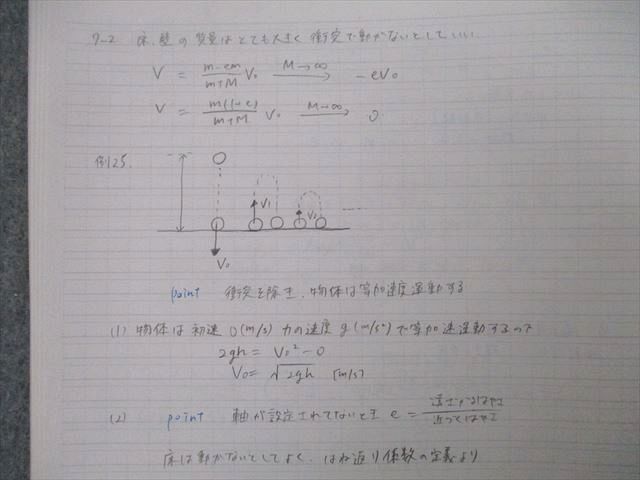 7-2 床、壁の質量はとても大きく衝突で動かないとしていい
V = \frac{m-em}{m+M} V₀ \xrightarrow{M→∞} -eV₀
V = \frac{m(1-e)}{m+M} V₀ \xrightarrow{M→∞} 0
例125.
V₁
V₂
V₀
point 衝突を除き、物体は等加速度運動する
(1) 物体は初速 0(m/s) 加速度 g(m/s²)で等加速運動するので
2gh = V₀² - 0
V₀ = √2gh [m/s]
(2) point 軸が設定されてないとき e = \frac{遠ざかるはやさ}{近づくはやさ}
床は動かないとしてよく、はね返り係数の定義より